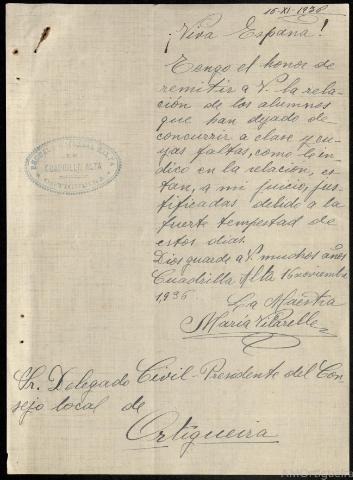 16-XI-1936
¡Viva España!
Tengo el honor de
remitir a V. la rela-
ción de los alumnos
que han dejado de
concurrir a clase y cu-
yas faltas, como lo in-
dico en la relación, es-
tan, a mi juicio, jus-
tificadas debido a la
fuerte tempestad de
estos días.
Dios guarde a V. muchos años
Cuadrilla Alta 16 noviembre
1936
La Maestra
María Vilarelle
CUADRILLA ALTA
Sr. Delegado Civil-Presidente del Con-
sejo local de
Ortigueira